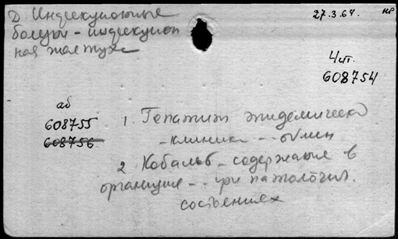 Д. Инфекционные 27.3.64. нр
болезни - инфекцион
ная желтуха
4 чт.
608754
аб
608755
608756
1. Гепатит эпидемическ
- клиника - - обмен
2. Кобальт - содержание в
организме - - при патологич.
состояниях